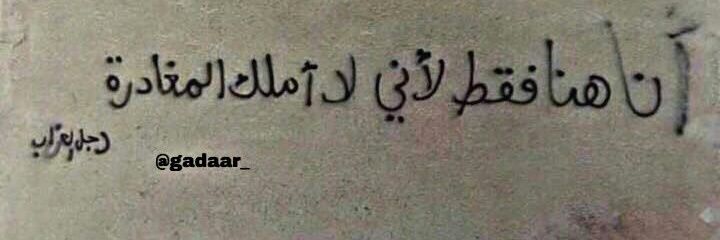 أنا هنا فقط لأني لا أملك المغادرة
رجل العرّاب
@gadaar_